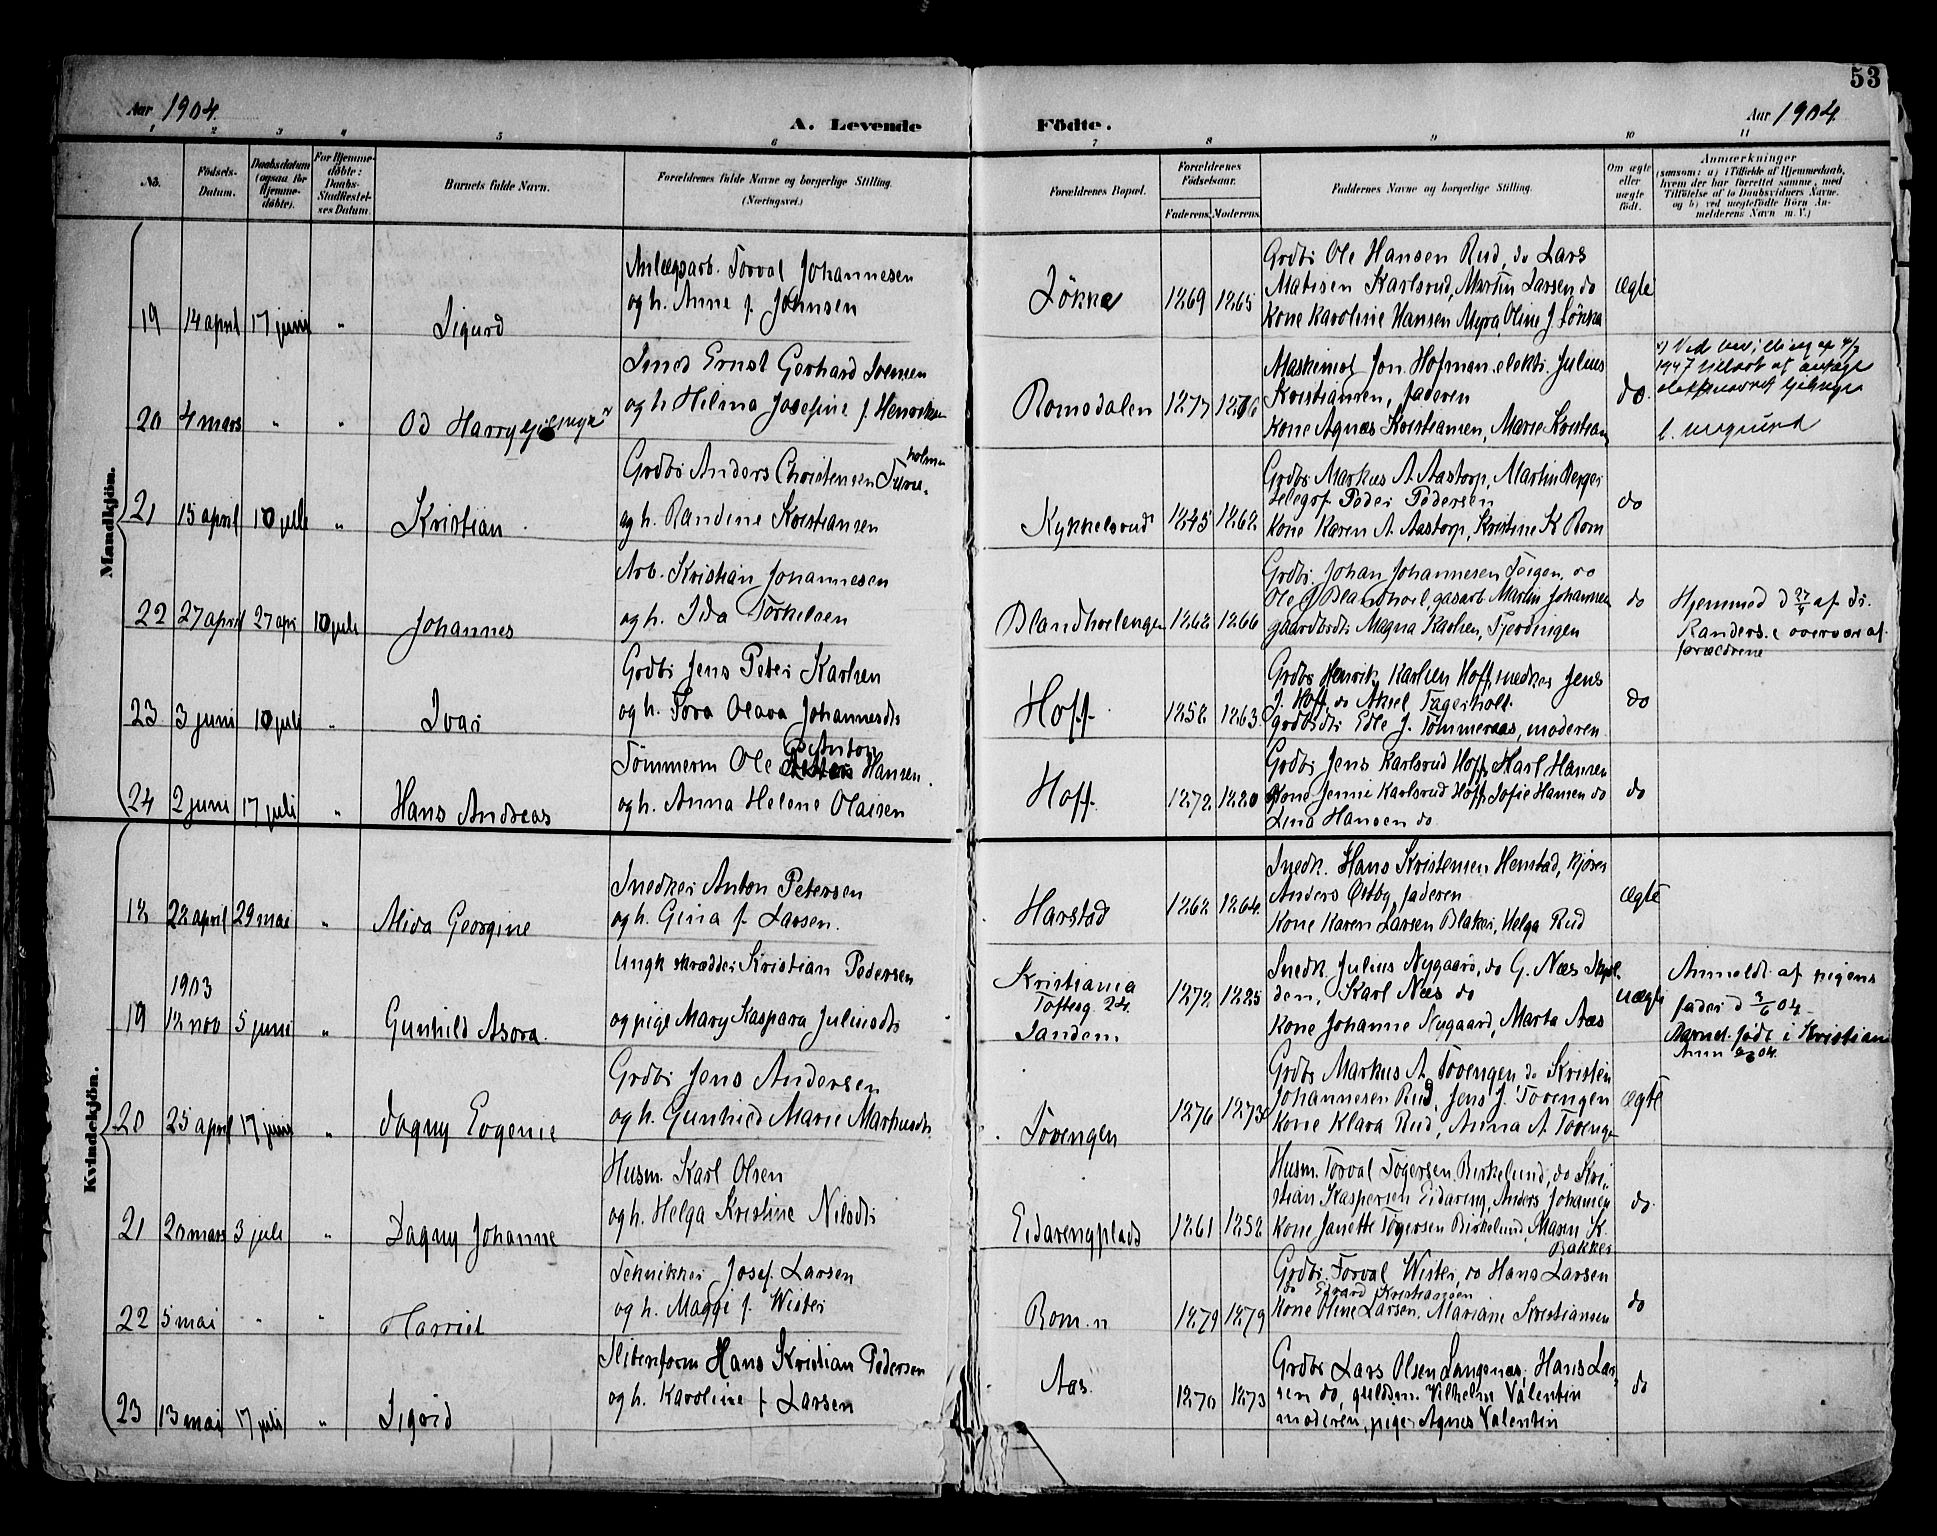 53
Aar 1904.
A. Levende Födte.
Aar 1904
1 2 3 4 5 6 7 8 9 10 11
No.
Födsels-Datum.
Daabsdatum (ogsaa for Hjemme-döbte).
For Hjemme-döbte: Daabs-Stadfæstel-ses Datum.
Barnets fulde Navn.
Forældrenes fulde Navne og borgerlige Stilling. (Næringsvei.)
Forældrenes Bopæl.
Forældrenes Födselsaar.
Faderens. Moderens.
Faddernes Navne og borgerlige Stilling.
Om ægte eller uægte födt.
Anmærkninger
(saasom: a) i Tilfælde af Hjemmedaab, hvem der har forrettet samme, med Tilföielse af to Daabsvidners Navne. og b) ved uægtefödte Börn An-melderens Navn m. V.)
Mandkjön.
19 14 april 17 juni " Sigurd
Anlægsarb. Torval Johannesen
og h. Anne f. Johnsen
Løkka 1869 1865
Grdbr Ole Hansen Rud, do Lars
Matisen Karlsrud, Martin Larsen do
Kone Karoline Hansen Myra, Oline J. Løkka
Ægte
20 4 mars " " Od Harry
Smed Ernst Gerhard
og h. Hilma Josefine f. Henriksen
Romsdalen 1877 1876
Jon Hofman elektr. Julius
Kristiansen, faderen
Kone Agnæs Kristiansen, Marie Kristian
do.
x) Ved bevilling af
1947 tillatt at antage
21 15 april 10 juli " Kristian
Grdbr Anders Christensen Ture-
holmen
og h. Randine Kristiansen
Kykkelsrud 1845 1862
Grdbr Markus A. Aastorp, Martin Berger
telegrf. Peder Pedersen
Kone Karen A. Aastorp, Kristine K Rom
do
22 27 april 27 apr 10 juli Johannes
Arb. Kristian Johannesen
og h. Ida Torkelsen
Blandhoelengen 1862 1866
Grdbr. Johan Johannesen Teigen, do
Ole Blandhoel, gaarb Martin Johannen
gaardbrdtr Magna Karlsen, Fjerdingen
do
Hjemmed d 27/4 af Dr.
Randers. i overvær af
forældrene
23 3 juni 10 juli " Ivar
Grdbr Jens Peter Karlsen
og h. Tora Olava Johannesdtr
Hoff. 1852 1863
Grdbr Henrik Karlsen Hoff, snedker Jens
J. Hoff, do Aksel Fagerholt.
grdbrdtr Edle J. Tømmeraas, moderen
do
24 2 juni 17 juli " Hans Andreas
Tømmerm Ole Anton Hansen.
og h. Anna Helene Olaisen
Hoff. 1872. 1880
Grdbr Jens Karlsrud Hoff, Karl Hansen
Kone Jenni Karlsrud Hoff, Sofie Hansen do
Lina Hansen do
do
Kvindekjön.
18 22 april 29 mai " Alida Georgine
Snedker Anton Petersen
og h. Gina f. Larsen.
Harstad 1862 1864.
Snedk. Hans Kristensen Henstad, kjører
Anders Østby, faderen
Kone Karen Larsen Blaker, Helga Rud
Ægte
1903
19 12 nov 5 juni " Gunhild Asora.
Ungk skrædder Kristian Pedersen
og pige Mary Kaspara Juliusdtr
Kristiania
Toftesg. 24.
Sandem 1872. 1885
Snedk. Julius Nygaard, do G. Næs
den, Karl Næs do
Kone Johanne Nygaard, Marta Aas
uægte
Anmeldt af pigens
fader d 3/6 04.
Barnet. født i Kristian
20 25 april 17 juni " Dagny Evgenie
Grdbr Jens Andersen
og h. Gunhild Marie Markusdtr.
Tovengen 1876 1873
Grdbr Markus A. Tovengen, do Kristen
Johannesen Rud, Jens J. Tovengen
Kone Klara Rud, Anna A. Tovenge
Ægte
21 20 mars 3 juli " Dagny Johanne
Husm. Karl Olsen
og h. Helga Kristine Nilsdtr
Eidarengplads 1861 1852
Husm. Torval Togersen Birkelund, do Kri-
stian Kaspersen Eidareng, Anders Johansen
Kone Janette Togersen Birkelund, Maren K.
Bakker
do.
22 5 mai " " Harriet
Tekniker Josef Larsen
og h. Maggi f. Wister
Rom. n 1879 1879
Grdbr. Torval Wister, do Hans Larsen
do Edvard Kristiansen
Kone Oline Larsen, Mariane Kristiansen
do
23 13 mai 17 juli " Sigrid
Sliberiform Hans Kristian Pedersen
og h. Karoline f Larsen
Aas. 1870 1873
Grdbr Lars Olsen Langenæs, Hans Lar-
sen do, guldsm. Vilhelm Valentin
moderen, pige Agnes Valentin
do